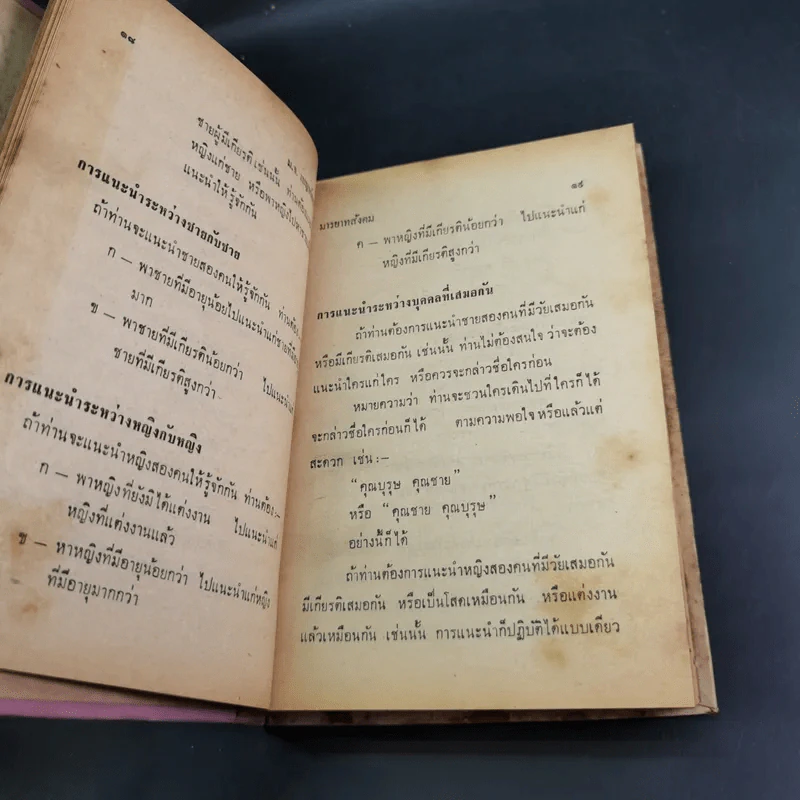 ๑๘
ชายผู้มีเกียรติ เช่นนั้น ท่านต้อง
หญิงแก่ชาย หรือพาหญิงไป
แนะนำให้รู้จักกัน
การแนะนำระหว่างชายกับชาย
ถ้าท่านจะแนะนำชายสองคนให้รู้จักกัน ท่านต้อง
ก — พาชายที่มีอายุน้อยไปแนะนำแก่ชายที่มีอายุ
มาก
ข — พาชายที่มีเกียรติน้อยกว่า ไปแนะนำแก่
ชายที่มีเกียรติสูงกว่า
การแนะนำระหว่างหญิงกับหญิง
ถ้าท่านจะแนะนำหญิงสองคนให้รู้จักกัน ท่านต้อง:—
ก — พาหญิงที่ยังมิได้แต่งงาน ไปแนะนำแก่
หญิงที่แต่งงานแล้ว
ข — หาหญิงที่มีอายุน้อยกว่า ไปแนะนำแก่หญิง
ที่มีอายุมากกว่า
มารยาทสังคม ๑๙
ค — พาหญิงที่มีเกียรติน้อยกว่า ไปแนะนำแก่
หญิงที่มีเกียรติสูงกว่า
การแนะนำระหว่างบุคคลที่เสมอกัน
ถ้าท่านต้องการแนะนำชายสองคนที่มีวัยเสมอกัน
หรือมีเกียรติเสมอกัน เช่นนั้น ท่านไม่ต้องสนใจ ว่าจะต้อง
แนะนำใครแก่ใคร หรือควรจะกล่าวชื่อใครก่อน
หมายความว่า ท่านจะชวนใครเดินไปที่ใครก็ได้
จะกล่าวชื่อใครก่อนก็ได้ ตามความพอใจ หรือแล้วแต่
สะดวก เช่น:—
“คุณบุรุษ คุณชาย”
หรือ “คุณชาย คุณบุรุษ”
อย่างนี้ก็ได้
ถ้าท่านต้องการแนะนำหญิงสองคนที่มีวัยเสมอกัน
มีเกียรติเสมอกัน หรือเป็นโสดเหมือนกัน หรือแต่งงาน
แล้วเหมือนกัน เช่นนั้น การแนะนำก็ปฏิบัติได้แบบเดียว